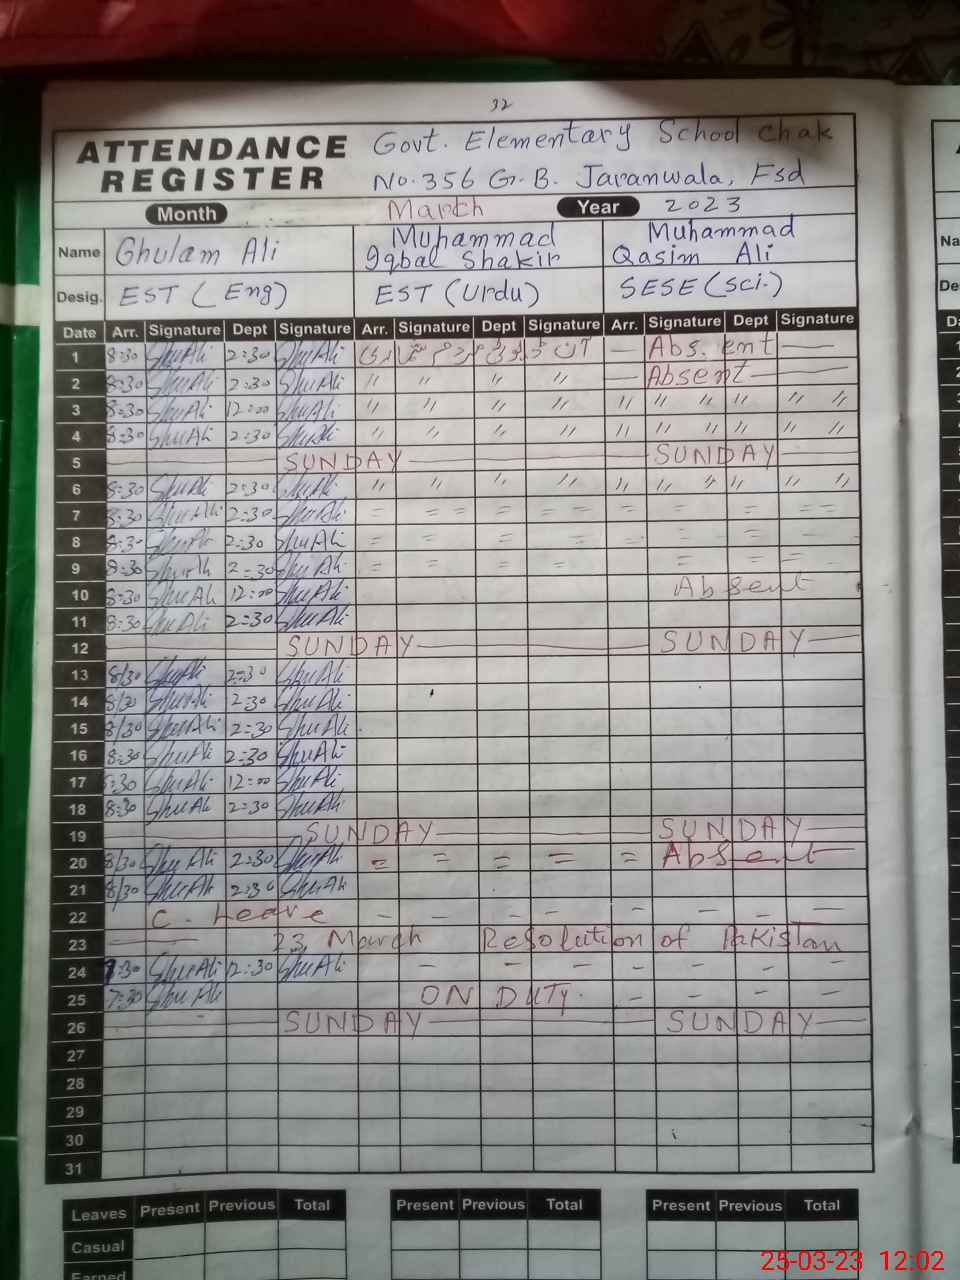 32
ATTENDANCE REGISTER
Govt. Elementary School Chak
No. 356 G.B. Jaranwala, Fsd
Month March Year 2023
Name Ghulam Ali Muhammad Iqbal Shakir Muhammad Qasim Ali
Desig. EST (Eng) EST (Urdu) SESE (Sci.)
Date Arr. Signature Dept Signature Arr. Signature Dept Signature Arr. Signature Dept Signature
1 8:30 2:30 — Absent —
2 8:30 2:30 " " " " — Absent —
3 8:30 12:00 " " " " " " " " " "
4 8:30 2:30 " " " " " " " " " "
5 SUNDAY SUNDAY
6 8:30 2:30 " " " " " " " " " "
7 8:30 2:30 = = = = = = = = = = = =
8 8:30 2:30 = = = = = = = -
9 8:30 2:30 = = = = = = =
10 8:30 12:00 Absent
11 8:30 2:30
12 SUNDAY SUNDAY
13 8/30 2:30
14 8/30 2:30
15 8/30 2:30
16 8:30 2:30
17 :30 12:00
18 8:30 2:30
19 SUNDAY SUNDAY
20 8/30 2:30 = = = = = Absent
21 8/30 2:30
22 C. Leave - - - - - - - -
23 23 March Resolution of Pakistan
24 :30 12:30 - - - - - - -
25 7:30 ON DUTY. - - - -
26 SUNDAY SUNDAY
27
28
29
30
31
Leaves Present Previous Total Present Previous Total Present Previous Total
Casual
Earned
25-03-23 12:02